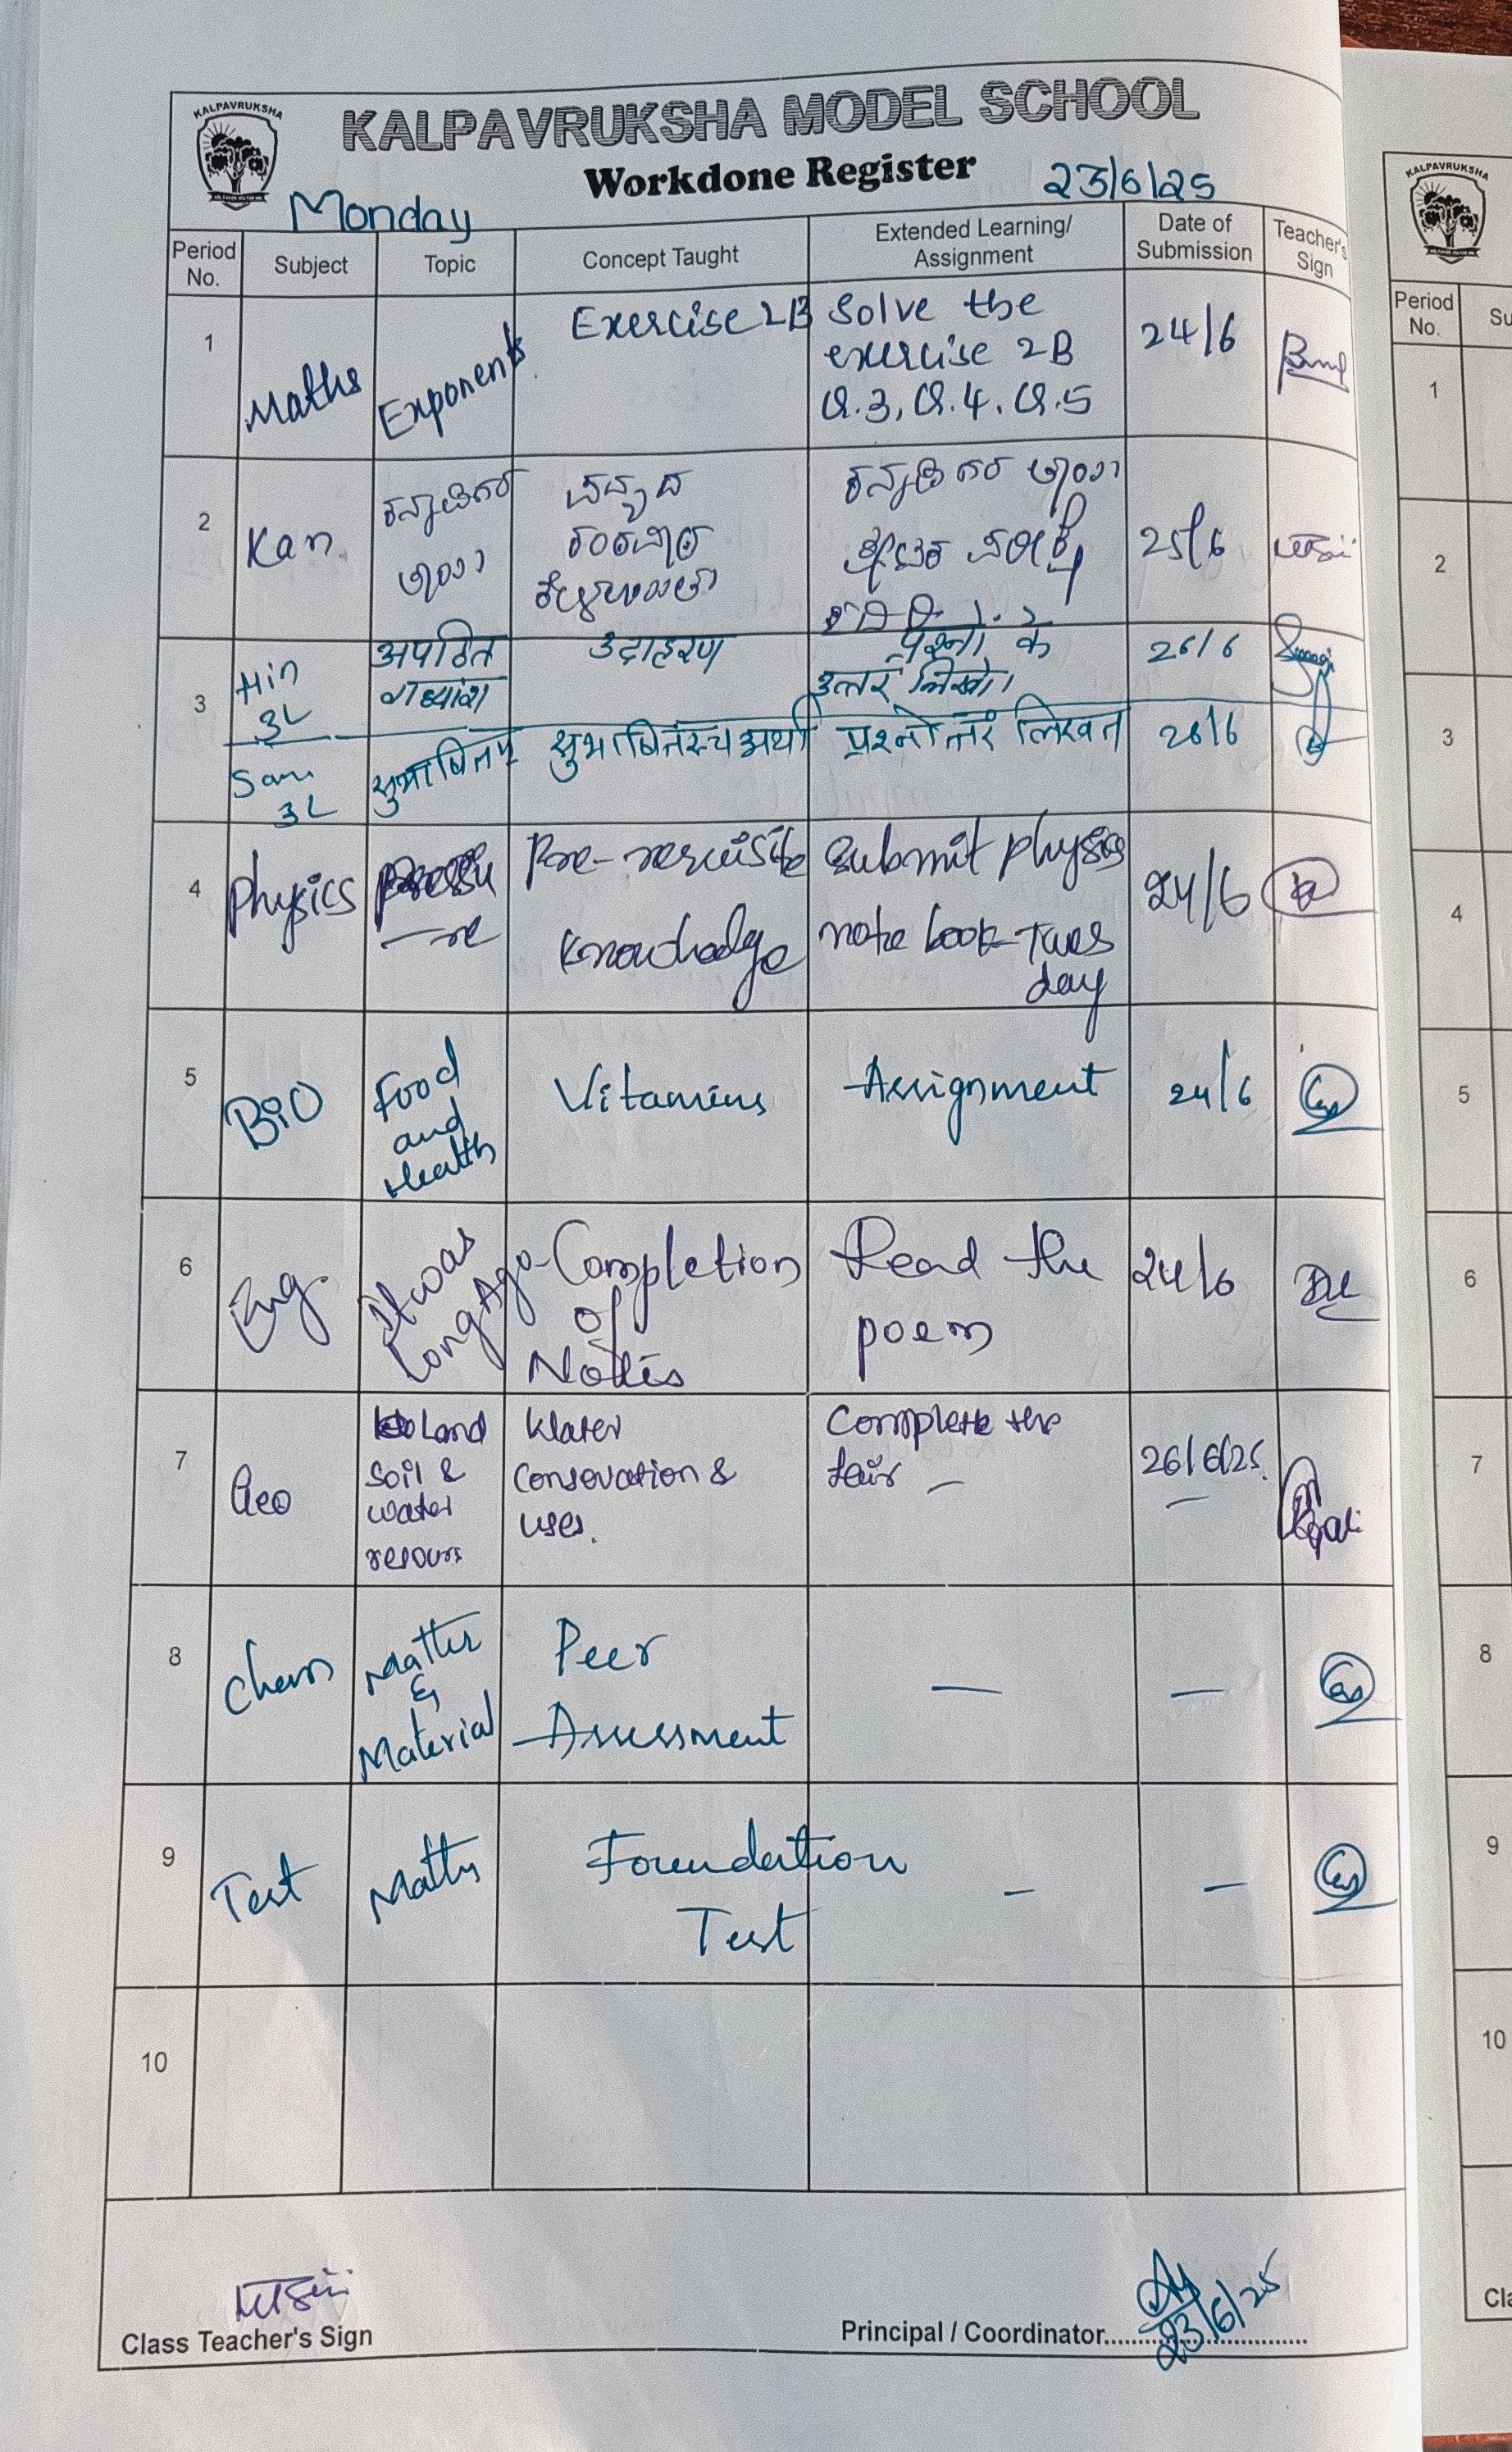 KALPAVRUKSHA
KALPAVRUKSHA MODEL SCHOOL
Workdone Register
23/6/25
Monday
Period No. Subject Topic Concept Taught Extended Learning/ Assignment Date of Submission Teacher's Sign
1 Maths Exponents Exercise 2B Solve the exercise 2B Q.3, Q.4, Q.5 24/6
2 Kan ಪದ್ಯದ 25/6
3 Hin 3L अपठित गद्यांश उदाहरण प्रश्नों के उत्तर लिखो। 26/6
San 3L प्रश्नोत्तरं लिखत 26/6
4 Physics Pre-requisite submit physics note book Tues day 24/6
5 BiO Food and Health Vitamins Assignment 24/6
6 Eng. It was Long Ago- Completion of Notes Read the poem 24/6
7 Geo Land Soil & water Water uses. Complete the 26/6/25.
8 Chem Matter & Material Peer Assessment — —
9 Test Maths Foundation Test – –
10
Class Teacher's Sign
Principal / Coordinator
23/6/25
KALPAVRUKSHA
Period No. Su
1
2
3
4
5
6
7
8
9
10
Cla